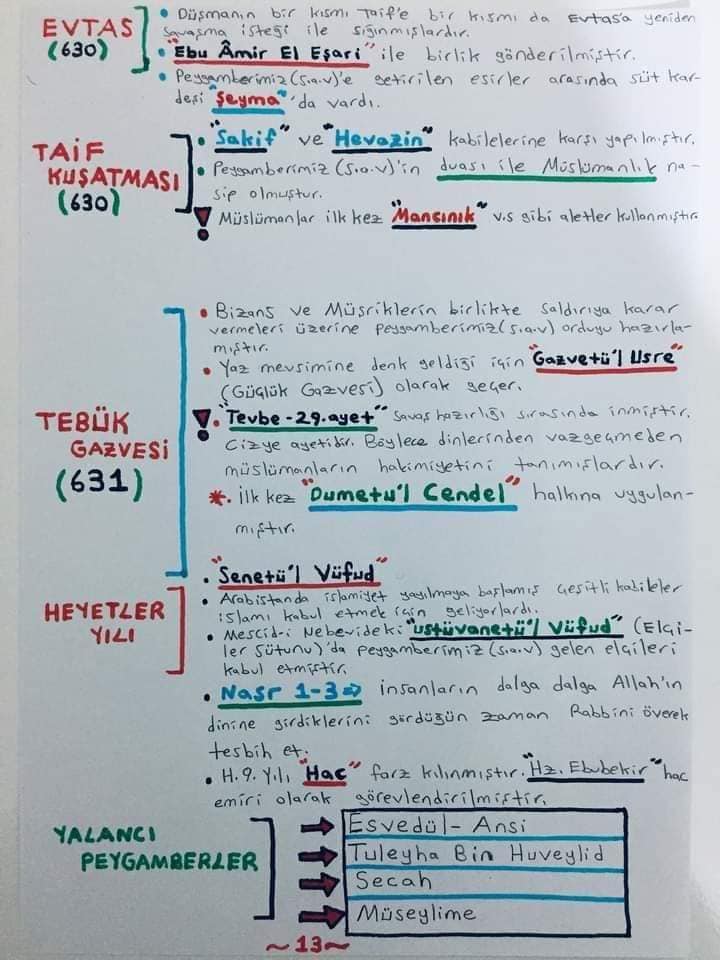 EVTAS
(630)
• Düşmanın bir kısmı Taif'e bir kısmı da Evtas'a yeniden
savaşma isteği ile sığınmışlardır.
• "Ebu Âmir El Eşari" ile birlik gönderilmiştir.
• Peygamberimiz (s.a.v)'e getirilen esirler arasında süt kar-
deşi "Şeyma" 'da vardı.
TAİF
KUŞATMASI
(630)
• "Sakif" ve "Hevazin" kabilelerine karşı yapılmıştır.
• Peygamberimiz (s.a.v)'in duası ile Müslümanlık na-
sip olmuştur.
! Müslümanlar ilk kez "Mancınık" v.s gibi aletler kullanmıştır.
TEBÜK
GAZVESİ
(631)
• Bizans ve Müşriklerin birlikte saldırıya karar
vermeleri üzerine peygamberimiz (s.a.v) orduyu hazırla-
mıştır.
• Yaz mevsimine denk geldiği için "Gazvetü'l Usre"
(Güçlük Gazvesi) olarak geçer.
! • "Tevbe - 29. ayet" savaş hazırlığı sırasında inmiştir.
Cizye ayetidir. Böylece dinlerinden vazgeçmeden
müslümanların hakimiyetini tanımışlardır.
*. İlk kez "Dumetu'l Cendel" halkına uygulan-
mıştır.
HEYETLER
YILI
• "Senetü'l Vüfud"
• Arabistanda islamiyet yayılmaya başlamış çeşitli kabileler
islamı kabul etmek için geliyorlardı.
• Mescid-i Nebevideki "üstüvanetü'l Vüfud" (Elçi-
ler Sütunu)'da peygamberimiz (s.a.v) gelen elçileri
kabul etmiştir.
• Nasr 1-3 ⇒ insanların dalga dalga Allah'ın
dinine girdiklerini gördüğün zaman Rabbini överek
tesbih et.
• H.9. Yılı "Hac" farz kılınmıştır. "Hz. Ebubekir" hac
emiri olarak görevlendirilmiştir.
YALANCI
PEYGAMBERLER
→ Esvedül- Ansi
→ Tuleyha Bin Huveylid
→ Secah
→ Müseylime
~ 13 ~